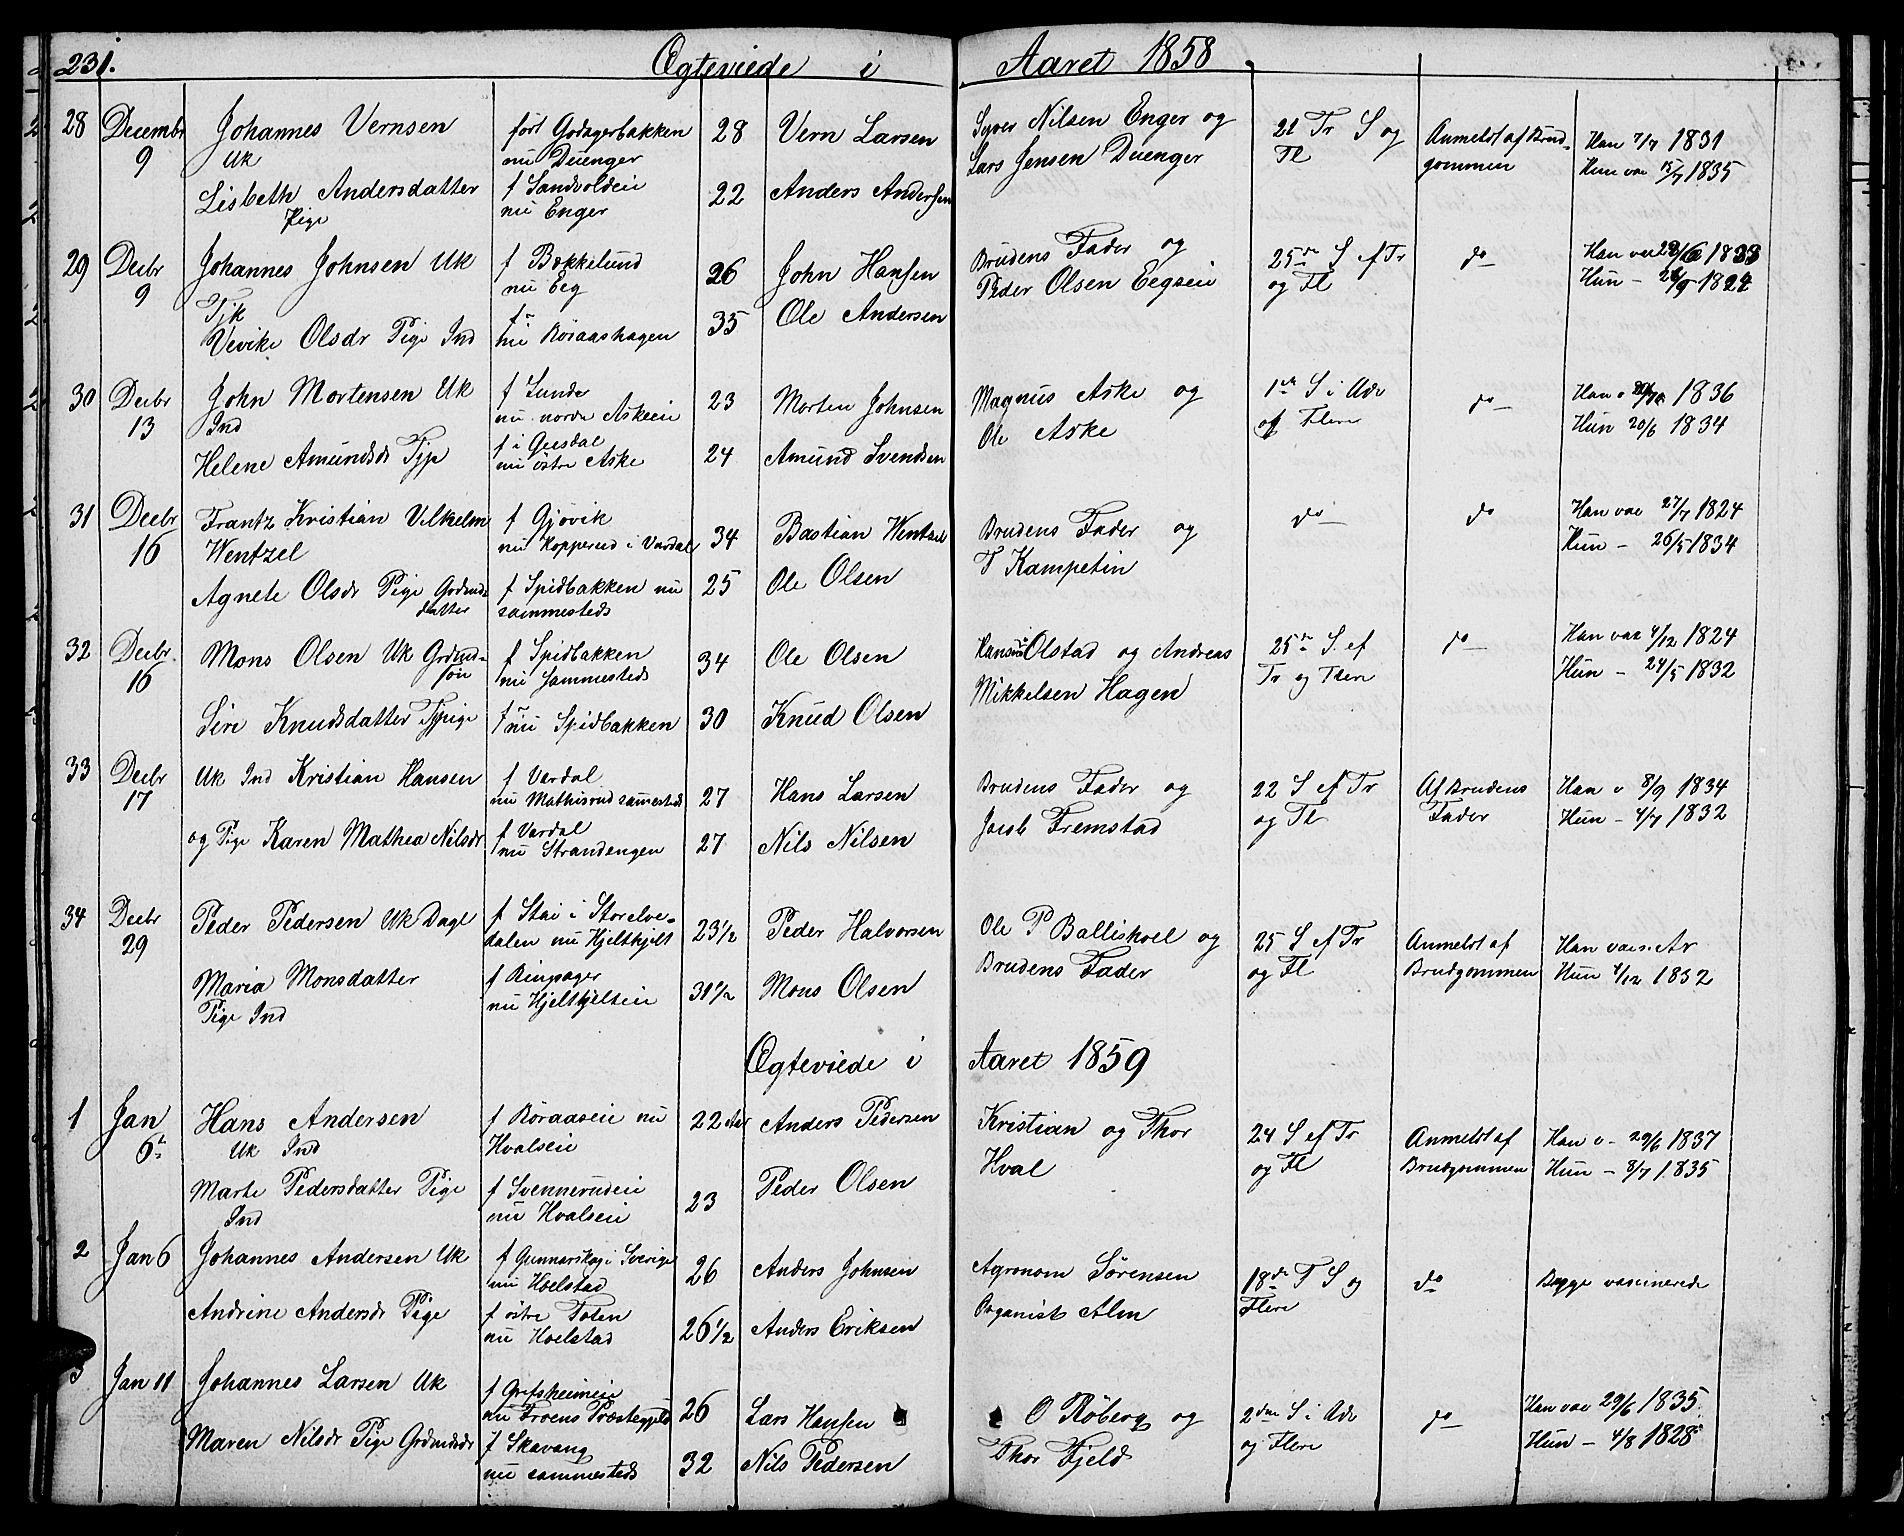 231. Ægteviede i Aaret 1858
28 Decembr 9 Johannes Vernsen Uk
født Godagerbakken nu Duenger 28 Vern Larsen
Syver Nilsen Enger og Lars Jensen Duenger
21 Tr S og Fl
Anmeldt af Brudgommen
Han 7/7 1831
Lisbeth Andersdatter Pige
f Sandvoldeie nu Enger 22 Anders Andersen
Hun vac 15/7 1835
29 Decbr 9 Johannes Johnsen Uk Tjk
f Bækkelund nu Eeg 26 John Hansen
Brudens Fader og Peder Olsen Eegseie
25de S ef Tr og Fl
do
Han vac 1833
Vevike Olsdr Pige Ind
f nu Röraashagen 35 Ole Andersen
Hun 1824
30 Decbr 13 John Mortensen Uk Ind
f Sunde nu nordre Askeeie 23 Morten Johnsen
Magnus Aske og Ole Aske
1ste S i Adv og Flere
do
Han v 1836
Helene Amundsdr Tjp
f i Geesdal nu östre Aske 24 Amund Svendsen
Hun 20/6 1834
31 Decbr 16 Frantz Kristian Vilhelm Wentzel
f Gjövik nu Kopperud i Vardal 34 Bastian Wentzel
Brudens Fader og T Kampetin
do
do
Han vac 27/7 1824
Agnete Olsdr Pige Grdmdsdatter
f Spidbakken nu sammesteds 25 Ole Olsen
Hun – 26/5 1834
32 Decbr. 16 Mons Olsen Uk Grdmdsön
f Spidbakken nu Sammesteds 34 Ole Olsen
Olstad og Andreas Mikkelsen Hagen
25de S. ef Tr og Flere
do
Han vac 4/12 1824
Siri Knudsdatter Tjpige
f nu Spidbakken 30 Knud Olsen
Hun – 24/5 1832
33 Decbr 17 Uk Ind Kristian Hansen
f Vardal nu Mathisrud sammesteds 27 Hans Larsen
Brudens Fader og Jacob Fremstad
22 S ef Tr og Fl
Af Brudens Fader
Han v 8/9 1834
og Pige Karen Mathea Nilsdr
f Vardal nu Strandengen 27 Nils Nilsen
Hun – 4/7 1832
34 Decbr 29 Peder Pedersen Uk Dagl
f Stai i Storelvedalen nu Hjeltkjelt 23 1/2 Peder Halvorsen
Ole P Balliskoel og Brudens Fader
25 S ef Tr og Fl
Anmeldt af Brudgommen
Han vac s. Ar
Maria Monsdatter Pige Ind
f Ringsager nu Hjeltkjelteie 31 1/2 Mons Olsen
Hun 4/12 1832
Ægteviede i Aaret 1859
1 Jan 6te Hans Andersen Uk Ind
f Röraaseie nu Hvalseie 22 Aar Anders Pedersen
Kristian og Thor Hval
24 S ef Tr og Fl
Anmeldt af Brudgommen
Han v – 29/6 1837
Marte Pedersdatter Pige Ind
f Svennerudeie nu Hvalseie 23 Peder Olsen
Hun – 8/7 1835
2 Jan 6 Johannes Andersen Uk
f Gunnarskog i Sverige nu Hoelstad 26 Anders Johnsen
Agronom Sörensen Organist Alm
18de T S og Flere
do
Begge vaccinerede
Andrine Andersdr Pige
f östre Toten nu Hoelstad 26 1/2 Anders Eriksen
3 Jan 11 Johannes Larsen Uk
f Grefsheimeie nu Froens Præstegjeld 26 Lars Hansen
O Röberg og Thor Fjeld
2den S i Adv og Flere
do
Han vac 29/6 1835
Maren Nilsdr Pige Grdmdsdr
f Skavang nu sammesteds 32 Nils Pedersen
Hun – 4/8 1828